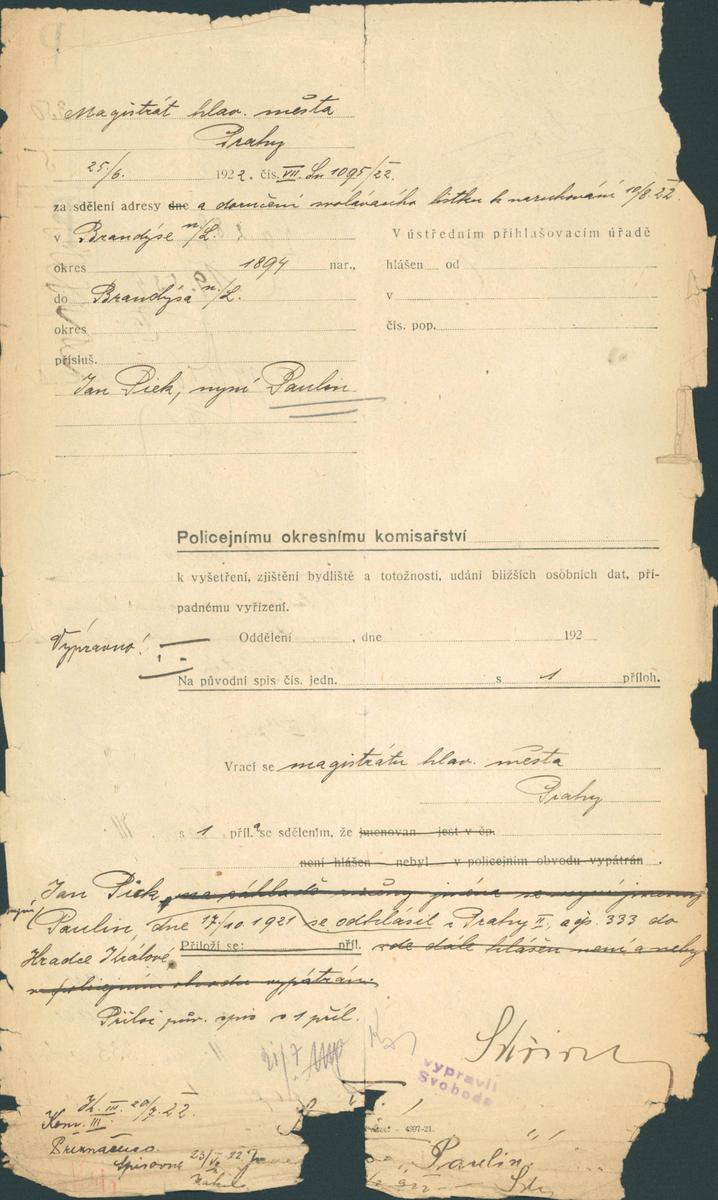 Magistrát hlav. města
Prahy
25/6. 1922. čís. VII. 1095/22.
za sdělení adresy dne a doručení svolávacího lístku k narukování 10/8.22.
v Brandýse n/L.
okres 1894 nar.,
do Brandýsa n/L.
okres
přísluš.
Jan Piek, nyní Paulin
V ústředním přihlašovacím úřadě
hlášen od
v
čís. pop.
Policejnímu okresnímu komisařství
k vyšetření, zjištění bydliště a totožnosti, udání bližších osobních dat, pří-
padnému vyřízení.
Výpravno!
Oddělení , dne 192
Na původní spis čís. jedn. s 1 příloh.
Vrací se magistrátu hlav. města
Prahy
s 1 příl. se sdělením, že jmenovan jest v čp.
není hlášen nebyl v policejním obvodu vypátrán.
Jan Piek, na základě změny jména se nyní
nyní Paulin, dne 17/10 1921 se odhlásil z Prahy II, čp. 333 do
Hradce Králové Přiloží se: příl. zde dále hlášen není a
v policejním obvodu vypátrán.
Přilož pův. spis s 1 příl.
vypravil
Svoboda
III. 20/7. 22
Kom. III.
Spisovna 23/ 22
4997-21.
Paulin